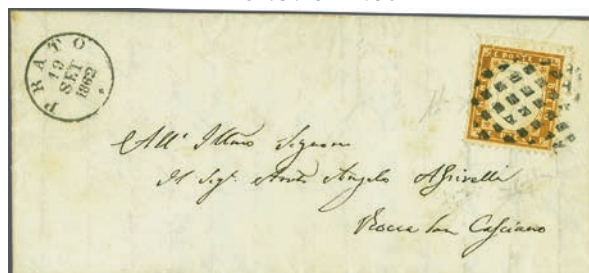 PRATO
19
SET
1862
All' Illmo Signore
Il Sigr. Angelo
Rocca San Casciano